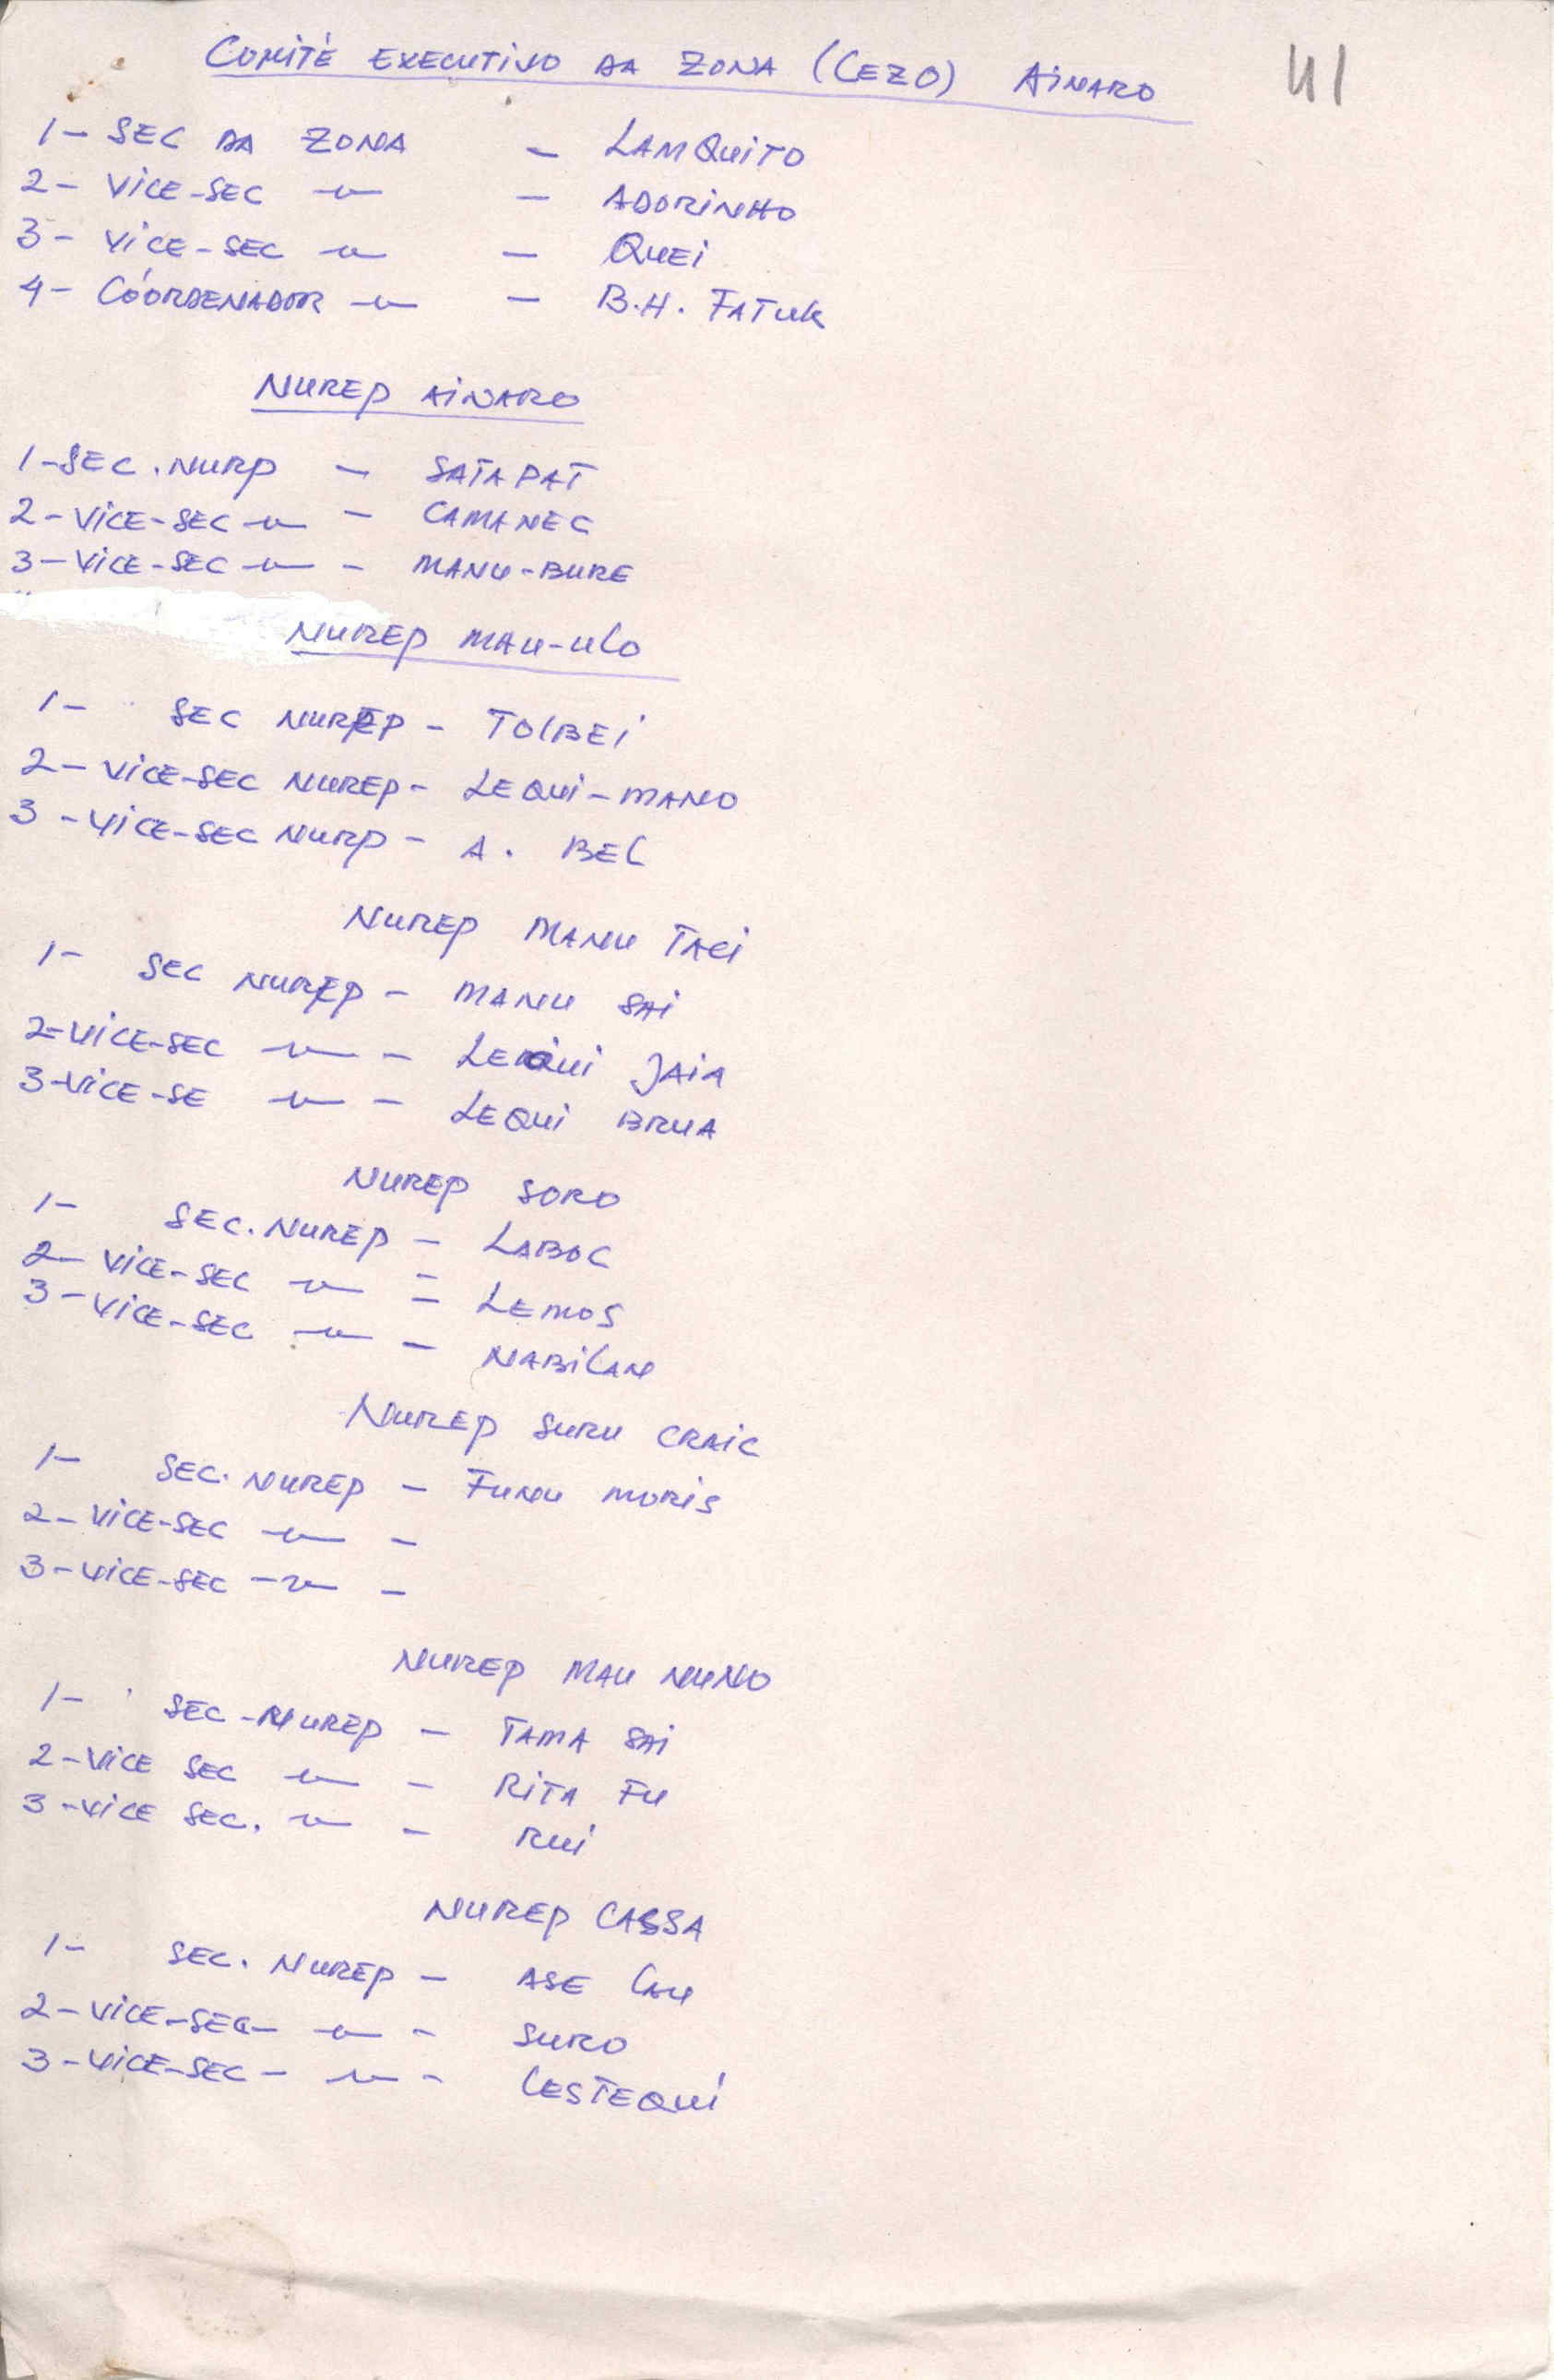 COMITÈ EXECUTIVO DA ZONA (CEZO) AINARO 41
1- SEC DA ZONA - LAMQUITO
2- VICE-SEC -"- - ADORINHO
3- VICE-SEC -"- - QUEI
4- CÓORDENADOR -"- - B.H. FATUK
NUREP AINARO
1-SEC. NURP - SATAPAT
2-VICE-SEC -"- - CAMANEC
3-VICE-SEC -"- - MANU-BURE
NUREP MAU-ULO
1- SEC NUREP - TOLBEI
2- VICE-SEC NUREP - LEQUI-MANO
3-VICE-SEC NURP - A. BEL
NUREP MANU TACI
1- SEC NUREP - MANU SAI
2-VICE-SEC -"- - LEQUI JAIA
3-VICE-SE -"- - LEQUI BRUA
NUREP SORO
1- SEC. NUREP - LABOC
2- VICE-SEC -"- = LEMOS
3-VICE-SEC -"- - NABILAN
NUREP SURU CRAIC
1- SEC. NUREP - FUNU MORIS
2- VICE-SEC -"- -
3-VICE-SEC -"- -
NUREP MAU NUNO
1- SEC-NUREP - TAMA SAI
2-VICE SEC -"- - RITA FU
3-VICE SEC. -"- - RUI
NUREP CASSA
1- SEC. NUREP - ASE LAU
2-VICE-SEC- -"- - SURO
3-VICE-SEC- -"- - LESTEQUI